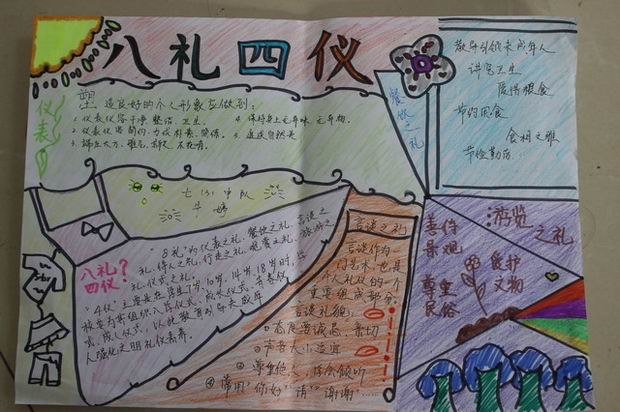 八礼四仪
仪表之礼
塑造良好的个人形象应做到:
1. 仪表仪容干净、整洁、卫生。
4. 保持身上无异味、无异物。
2. 仪表仪容简约、力戒
3. 端庄大方、
餐饮之礼
教导引领未成年人
讲究卫生
爱惜粮食
节约用食
食相文雅
节俭
七(3)中队
八礼
四仪?
"8礼"为仪表之礼、餐饮之礼、言谈之
礼、待人之礼、行走之礼、观赏之礼、游览之
礼、仪式之礼。
"4仪"主要是在学生7岁、10岁、14岁、18岁时,学
校应为其组织入学仪式、成长仪式、青春仪
式、成人仪式,以此教育引导未成年
人强化文明礼仪素养。
言谈之礼
言谈作为一
门艺术,也是
个人礼仪的一个
重要组成部分。
言谈礼貌:
①态度诚恳、亲切
②声音大小适宜
③尊重他人
④常用"你好""请""谢谢"……
游览之礼
善待
景观
爱护
文物
尊重
民俗